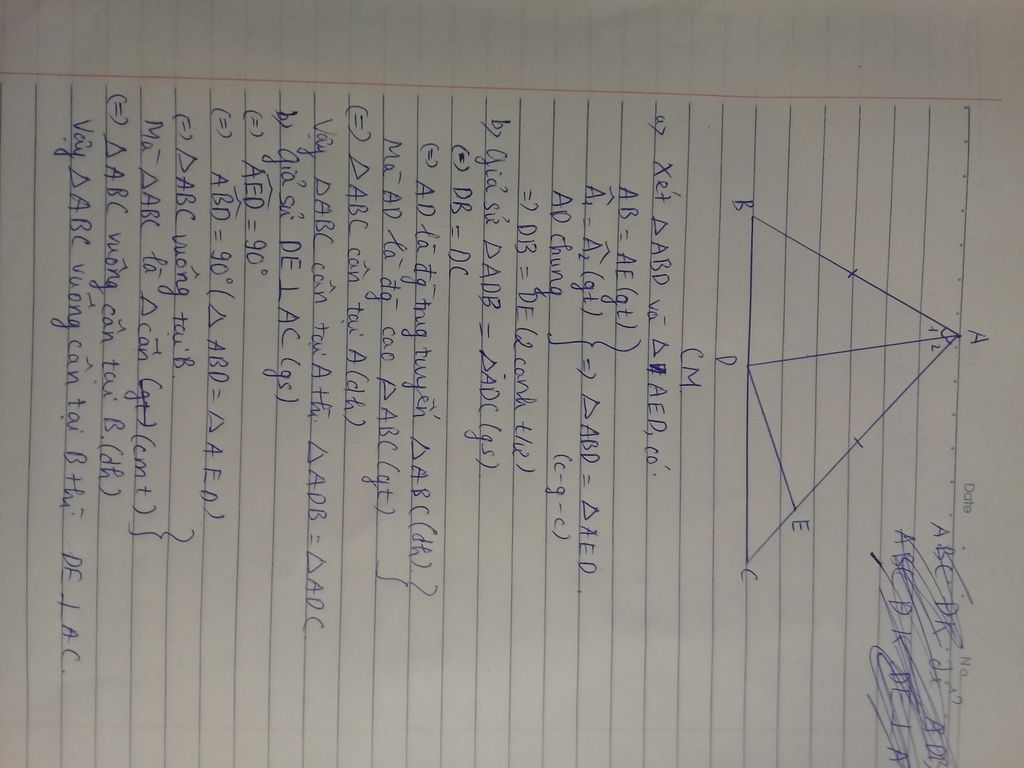 Date
A
1 2
B
D
C
E
CM
a, Xét △ABD và △AED, có:
AB = AE (gt)
Â₁ = Â₂ (gt) } => △ABD = △AED
AD chung (c-g-c)
=> DB = DE (2 cạnh t/ư)
b, Giả sử △ADB = △ADC (gs)
(=) DB = DC
(=) AD là đg trung tuyến △ABC (dh) }
Mà AD là đg cao △ABC (gt)
(=) △ABC cân tại A (dh)
Vậy △ABC cân tại A thì △ADB = △ADC
b, Giả sử DE ⊥ AC (gs)
(=) AED = 90°
(=) ABD = 90° (△ABD = △AED)
(=) △ABC vuông tại B }
Mà △ABC là △ cân (cmt)
(=) △ABC vuông cân tại B. (dh)
Vậy △ABC vuông cân tại B thì DE ⊥ AC.